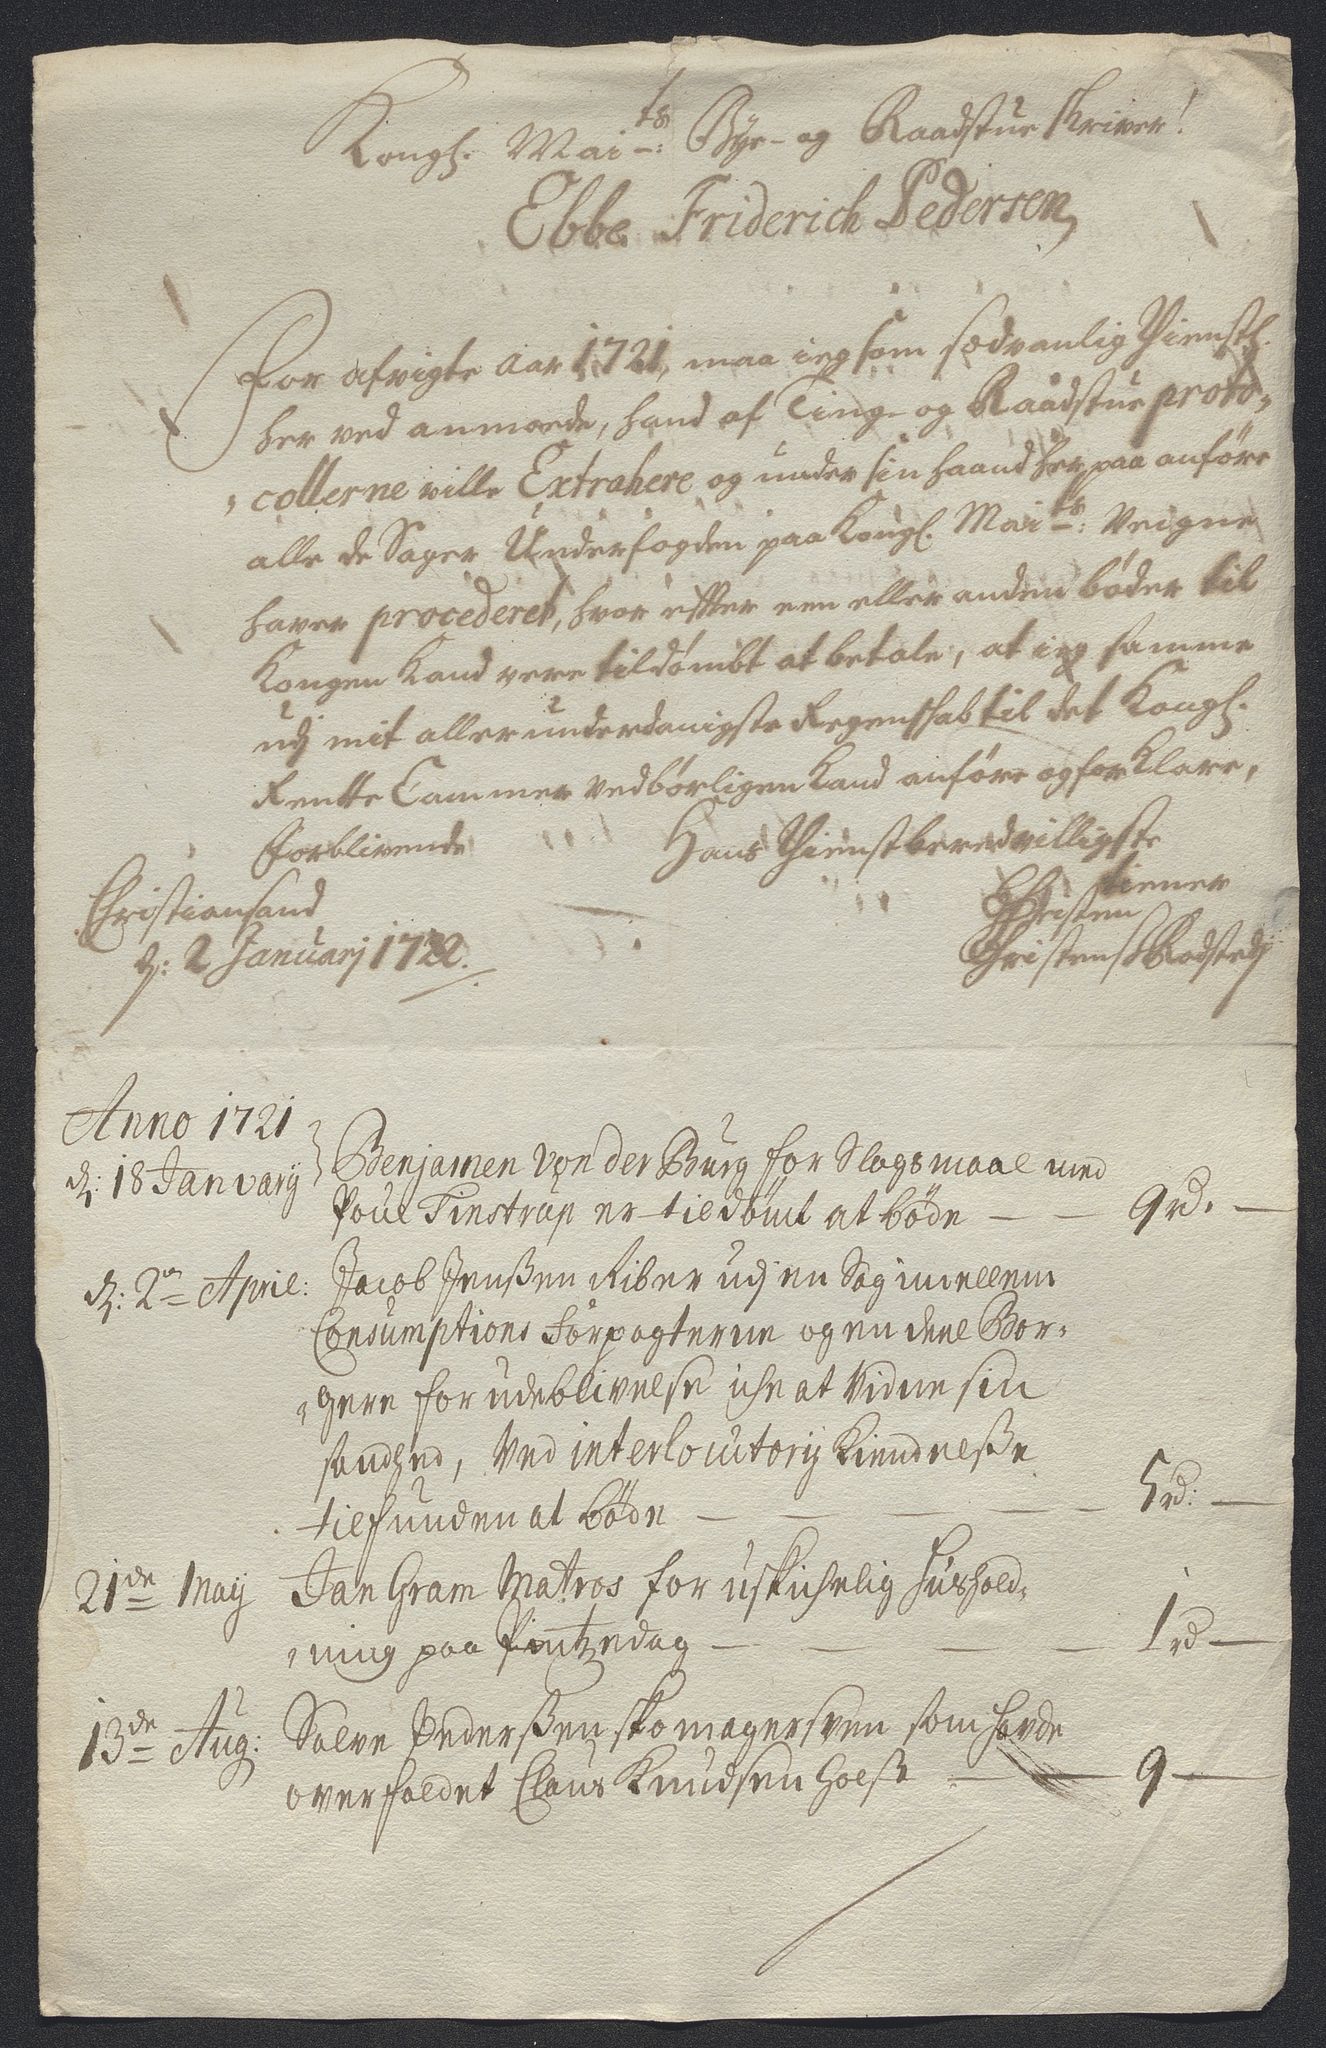 Kongl. Maits: Bye- og Raadstue skriver!
Ebbe Friderich Pedersen
For afvigte Aar 1721, maa ieg som sædvanlig Thienstl.
her ved anmode, hand af Ting- og Raadstue proto-
collerne ville Extrahere og under sin haand her paa anføre
alle de Sager Underfogden paa Kongl. Maits: Veigne
haver procederet, hvor effter een eller anden bøder til
Kongen kand vere tildømbt at betale, at ieg samme
udj mit allerunderdanigste Regenskab til det Kongl.
Rentte Cammer vedbørligen kand anføre og forklare,
Forblivende Hans Thienstberedvilligste
tiener
Christiansand Christen
d: 2 Januarj 1722. Christens Rodsted
Anno 1721
d: 18 January Benjamen von der Burg for Slagsmaal med
Poul Tinstrup er tildømt at bøde — — 9 rd. —
d: 2n April: Jacob Jenßen Riber udj en Sag imellem
Consumptions Forpagterne og en deel Bor-
gere for udeblivelse iche at Vidne sin
sandhed, Ved interlocutorij Kiendelße
tilfunden at bøde — — — — 5 rd: —
21de May Jan Gram Matros for uskichelig Hushold-
ning paa Pintzedag — — — — 1 rd —
13de Aug: Salve Pederßen skomagersven som hafde
overfaldet Claus Knudsen Holst — — 9 —